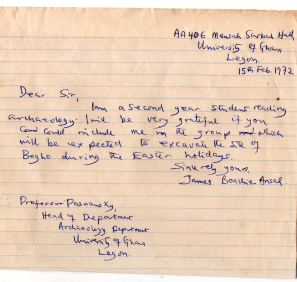 AA406 Mensah Sarbah Hall,
University of Ghana
Legon.
15th Feb. 1972
Dear Sir,
I am a second year student reading
archaeology. I will be very grateful if you
could include me in the group which
will be expected to excavate the site of
Begho during the Easter holidays.
Sincerely yours,
James Boachie Ansah
Professor Posnansky,
Head of Department
Archaeology Department
University of Ghana
Legon.